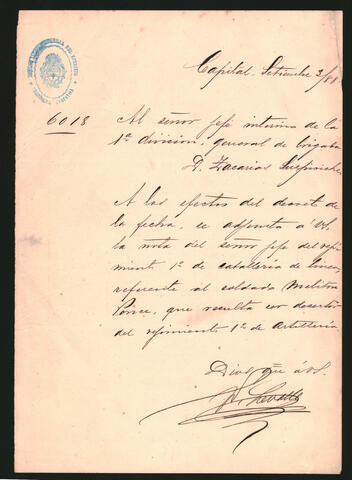 Capital, Setiembre 3/88
6013
Al señor jefe interino de la
1ª division, general de brigada
D. Zacarias Supisiche
A los efectos del decreto de
la fecha, se adjunta á VS.
la nota del señor jefe del regi-
miento 1º de caballeria de linea,
referente al soldado Meliton
Ponce, que resulta ser desertor
del regimiento 1º de Artilleria
Dios gūe á VS.
N. Levalle